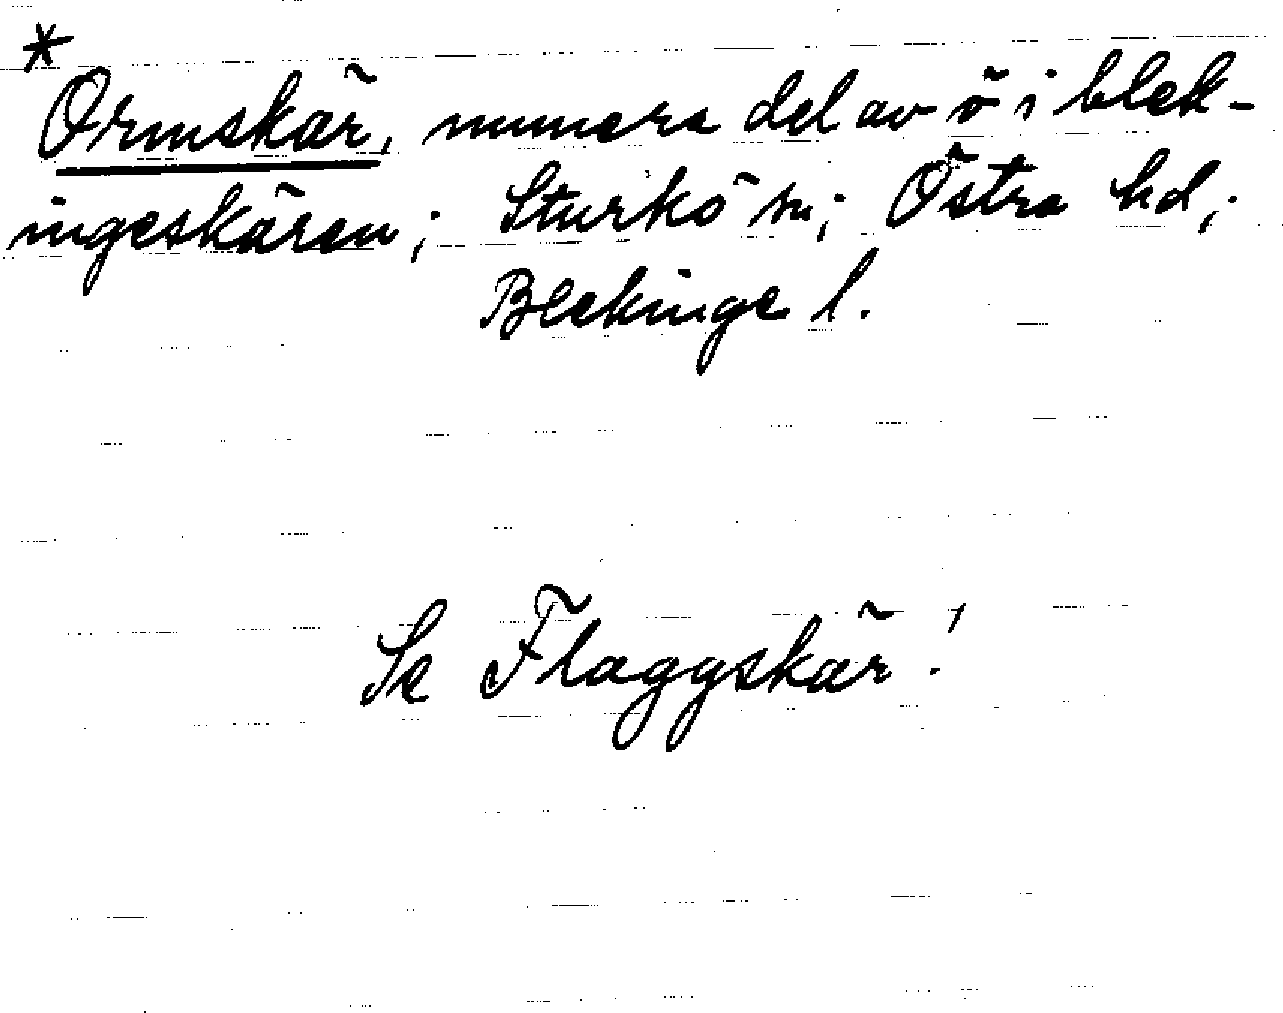 *
Ormskär, numera del av ö i blek-
ingeskären; Sturkö sn; Östra hd;
Blekinge l.
Se Flaggskär!